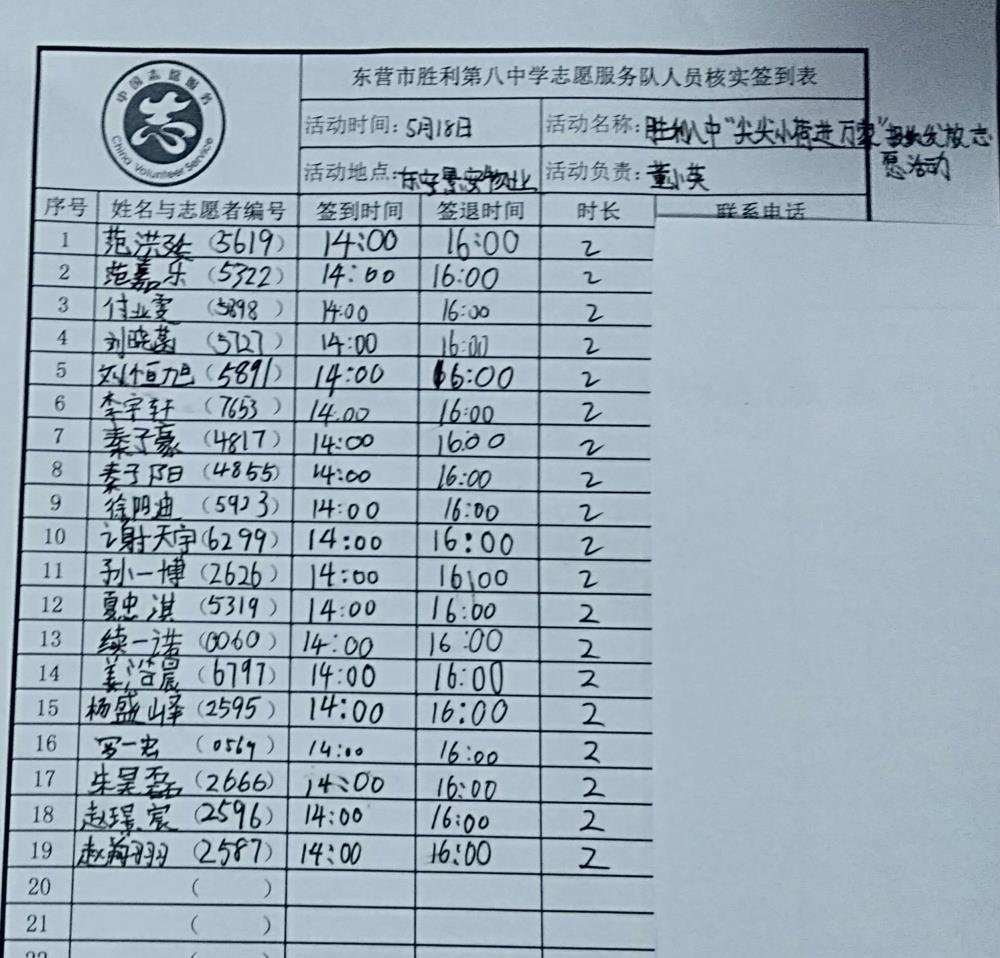 中国志愿服务
China Volunteer Service
东营市胜利第八中学志愿服务队人员核实签到表
活动时间：5月18日 活动名称：胜利八中"尖尖小荷进万家"发放志
愿活动
活动地点：东安景安物业 活动负责：董小英
序号 姓名与志愿者编号 签到时间 签退时间 时长 联系电话
1 范洪 (5619) 14:00 16:00 2
2 范嘉乐 (5322) 14:00 16:00 2
3 付业雯 (5898) 14:00 16:00 2
4 刘晓菡 (5727) 14:00 16:00 2
5 刘恒旭 (5891) 14:00 16:00 2
6 李宇轩 (7653) 14:00 16:00 2
7 秦子豪 (4817) 14:00 16:00 2
8 秦子阳 (4855) 14:00 16:00 2
9 徐阴迪 (5923) 14:00 16:00 2
10 谢天宇 (6299) 14:00 16:00 2
11 孙一博 (2626) 14:00 16:00 2
12 夏忠淇 (5319) 14:00 16:00 2
13 续一诺 (0060) 14:00 16:00 2
14 姜浩晨 (6797) 14:00 16:00 2
15 杨盛峄 (2595) 14:00 16:00 2
16 罗一宏 (0569) 14:00 16:00 2
17 朱昊磊 (2666) 14:00 16:00 2
18 赵璟宸 (2596) 14:00 16:00 2
19 赵翊羽 (2587) 14:00 16:00 2
20 ( )
21 ( )